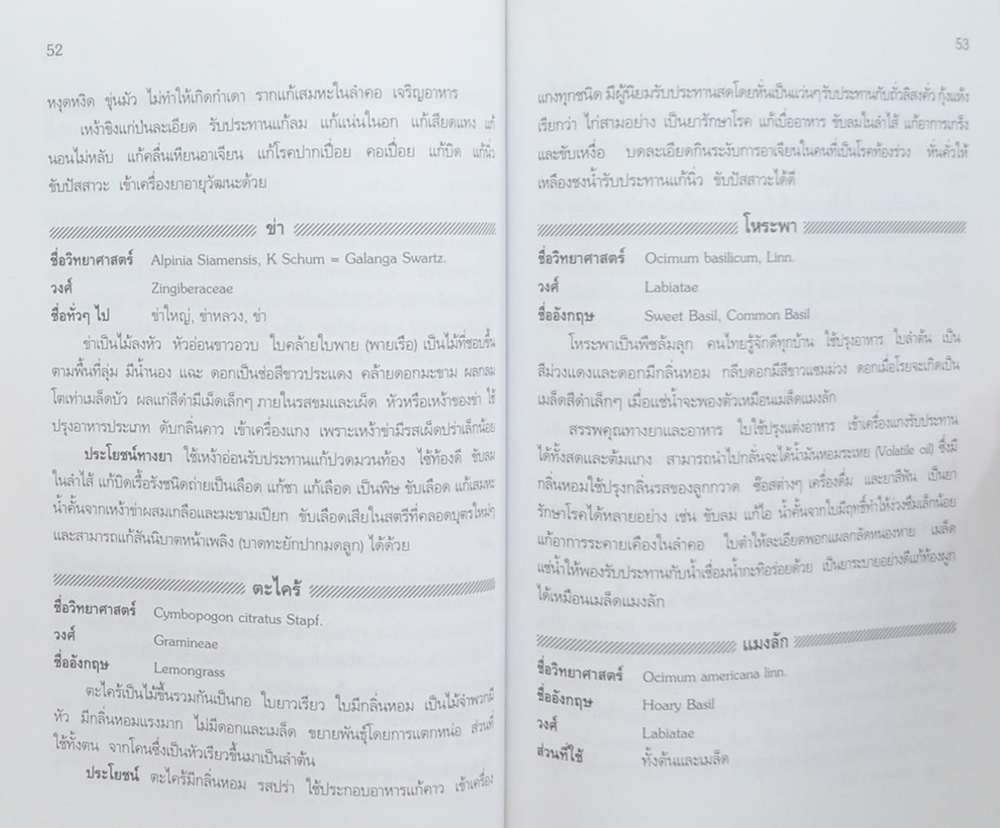 52
หงุดหงิด ขุ่นมัว ไม่ทำให้เกิดกำเดา รากแก้เสมหะในลำคอ เจริญอาหาร
เหง้าขิงแก่ปนละเอียด รับประทานแก้ลม แก้แน่นในอก แก้เสียดแทง แก้
นอนไม่หลับ แก้คลื่นเหียนอาเจียน แก้โรคปากเปื่อย คอเปื่อย แก้บิด แก้นิ่ว
ขับปัสสาวะ เข้าเครื่องยาอายุวัฒนะด้วย
ข่า
ชื่อวิทยาศาสตร์ Alpinia Siamensis, K Schum = Galanga Swartz.
วงศ์ Zingiberaceae
ชื่อทั่วๆ ไป ข่าใหญ่, ข่าหลวง, ข่า
ข่าเป็นไม้ลงหัว หัวอ่อนขาวอวบ ใบคล้ายใบพาย (พายเรือ) เป็นไม้ที่ชอบขึ้น
ตามพื้นที่ลุ่ม มีน้ำนอง แฉะ ดอกเป็นช่อสีขาวประแดง คล้ายดอกมะขาม ผลกลม
โตเท่าเมล็ดบัว ผลแก่สีดำมีเม็ดเล็กๆ ภายในรสขมและเผ็ด หัวหรือเหง้าของข่า ใช้
ปรุงอาหารประเภท ดับกลิ่นคาว เข้าเครื่องแกง เพราะเหง้าข่ามีรสเผ็ดปร่าเล็กน้อย
ประโยชน์ทางยา ใช้เหง้าอ่อนรับประทานแก้ปวดมวนท้อง ไช้ท้องดี ขับลม
ในลำไส้ แก้บิดเรื้อรังชนิดถ่ายเป็นเลือด แก้ซา แก้เลือด เป็นพิษ ขับเลือด แก้เสมหะ
น้ำคั้นจากเหง้าข่าผสมเกลือและมะขามเปียก ขับเลือดเสียในสตรีที่คลอดบุตรใหม่ๆ
และสามารถแก้สันนิบาตหน้าเพลิง (บาดทะยักปากมดลูก) ได้ด้วย
ตะไคร้
ชื่อวิทยาศาสตร์ Cymbopogon citratus Stapf.
วงศ์ Gramineae
ชื่ออังกฤษ Lemongrass
ตะไคร้เป็นไม้ขึ้นรวมกันเป็นกอ ใบยาวเรียว ใบมีกลิ่นหอม เป็นไม้จำพวกมี
หัว มีกลิ่นหอมแรงมาก ไม่มีดอกและเมล็ด ขยายพันธุ์โดยการแตกหน่อ ส่วนที่
ใช้ทั้งตน จากโคนซึ่งเป็นหัวเรียวขึ้นมาเป็นลำต้น
ประโยชน์ ตะไคร้มีกลิ่นหอม รสปร่า ใช้ประกอบอาหารแก้คาว เข้าเครื่อง
53
แกงทุกชนิด มีผู้นิยมรับประทานสดโดยหั่นเป็นแว่นๆรับประทานกับถั่วลิสงคั่ว กุ้งแห้ง
เรียกว่า ไก่สามอย่าง เป็นยารักษาโรค แก้เบื่ออาหาร ขับลมในลำไส้ แก้อาการเกร็ง
และขับเหงื่อ บดละเอียดกินระงับการอาเจียนในคนที่เป็นโรคท้องร่วง หั่นคั่วให้
เหลืองชงน้ำรับประทานแก้นิ่ว ขับปัสสาวะได้ดี
โหระพา
ชื่อวิทยาศาสตร์ Ocimum basilicum, Linn.
วงศ์ Labiatae
ชื่ออังกฤษ Sweet Basil, Common Basil
โหระพาเป็นพืชล้มลุก คนไทยรู้จักดีทุกบ้าน ใช้ปรุงอาหาร ใบลำต้น เป็น
สีม่วงแดงและดอกมีกลิ่นหอม กลีบดอกมีสีขาวแซมม่วง ดอกเมื่อโรยจะเกิดเป็น
เมล็ดสีดำเล็กๆ เมื่อแช่น้ำจะพองตัวเหมือนเมล็ดแมงลัก
สรรพคุณทางยาและอาหาร ใบใช้ปรุงแต่งอาหาร เข้าเครื่องแกงรับประทาน
ได้ทั้งสดและต้มแกง สามารถนำไปกลั่นจะได้น้ำมันหอมระเหย (Volatile oil) ซึ่งมี
กลิ่นหอมใช้ปรุงกลิ่นรสของลูกกวาด ซ๊อสต่างๆ เครื่องดื่ม และยาสีฟัน เป็นยา
รักษาโรคได้หลายอย่าง เช่น ขับลม แก้ไอ น้ำคั้นจากใบมีฤทธิ์ทำให้ง่วงซึมเล็กน้อย
แก้อาการระคายเคืองในลำคอ ใบตำให้ละเอียดพอกแผลกลัดหนองหาย เมล็ด
แช่น้ำให้พองรับประทานกับน้ำเชื่อมน้ำกะทิอร่อยด้วย เป็นยาระบายอย่างดีแก้ท้องผูก
ได้เหมือนเมล็ดแมงลัก
แมงลัก
ชื่อวิทยาศาสตร์ Ocimum americana linn.
ชื่ออังกฤษ Hoary Basil
วงศ์ Labiatae
ส่วนที่ใช้ ทั้งต้นและเมล็ด